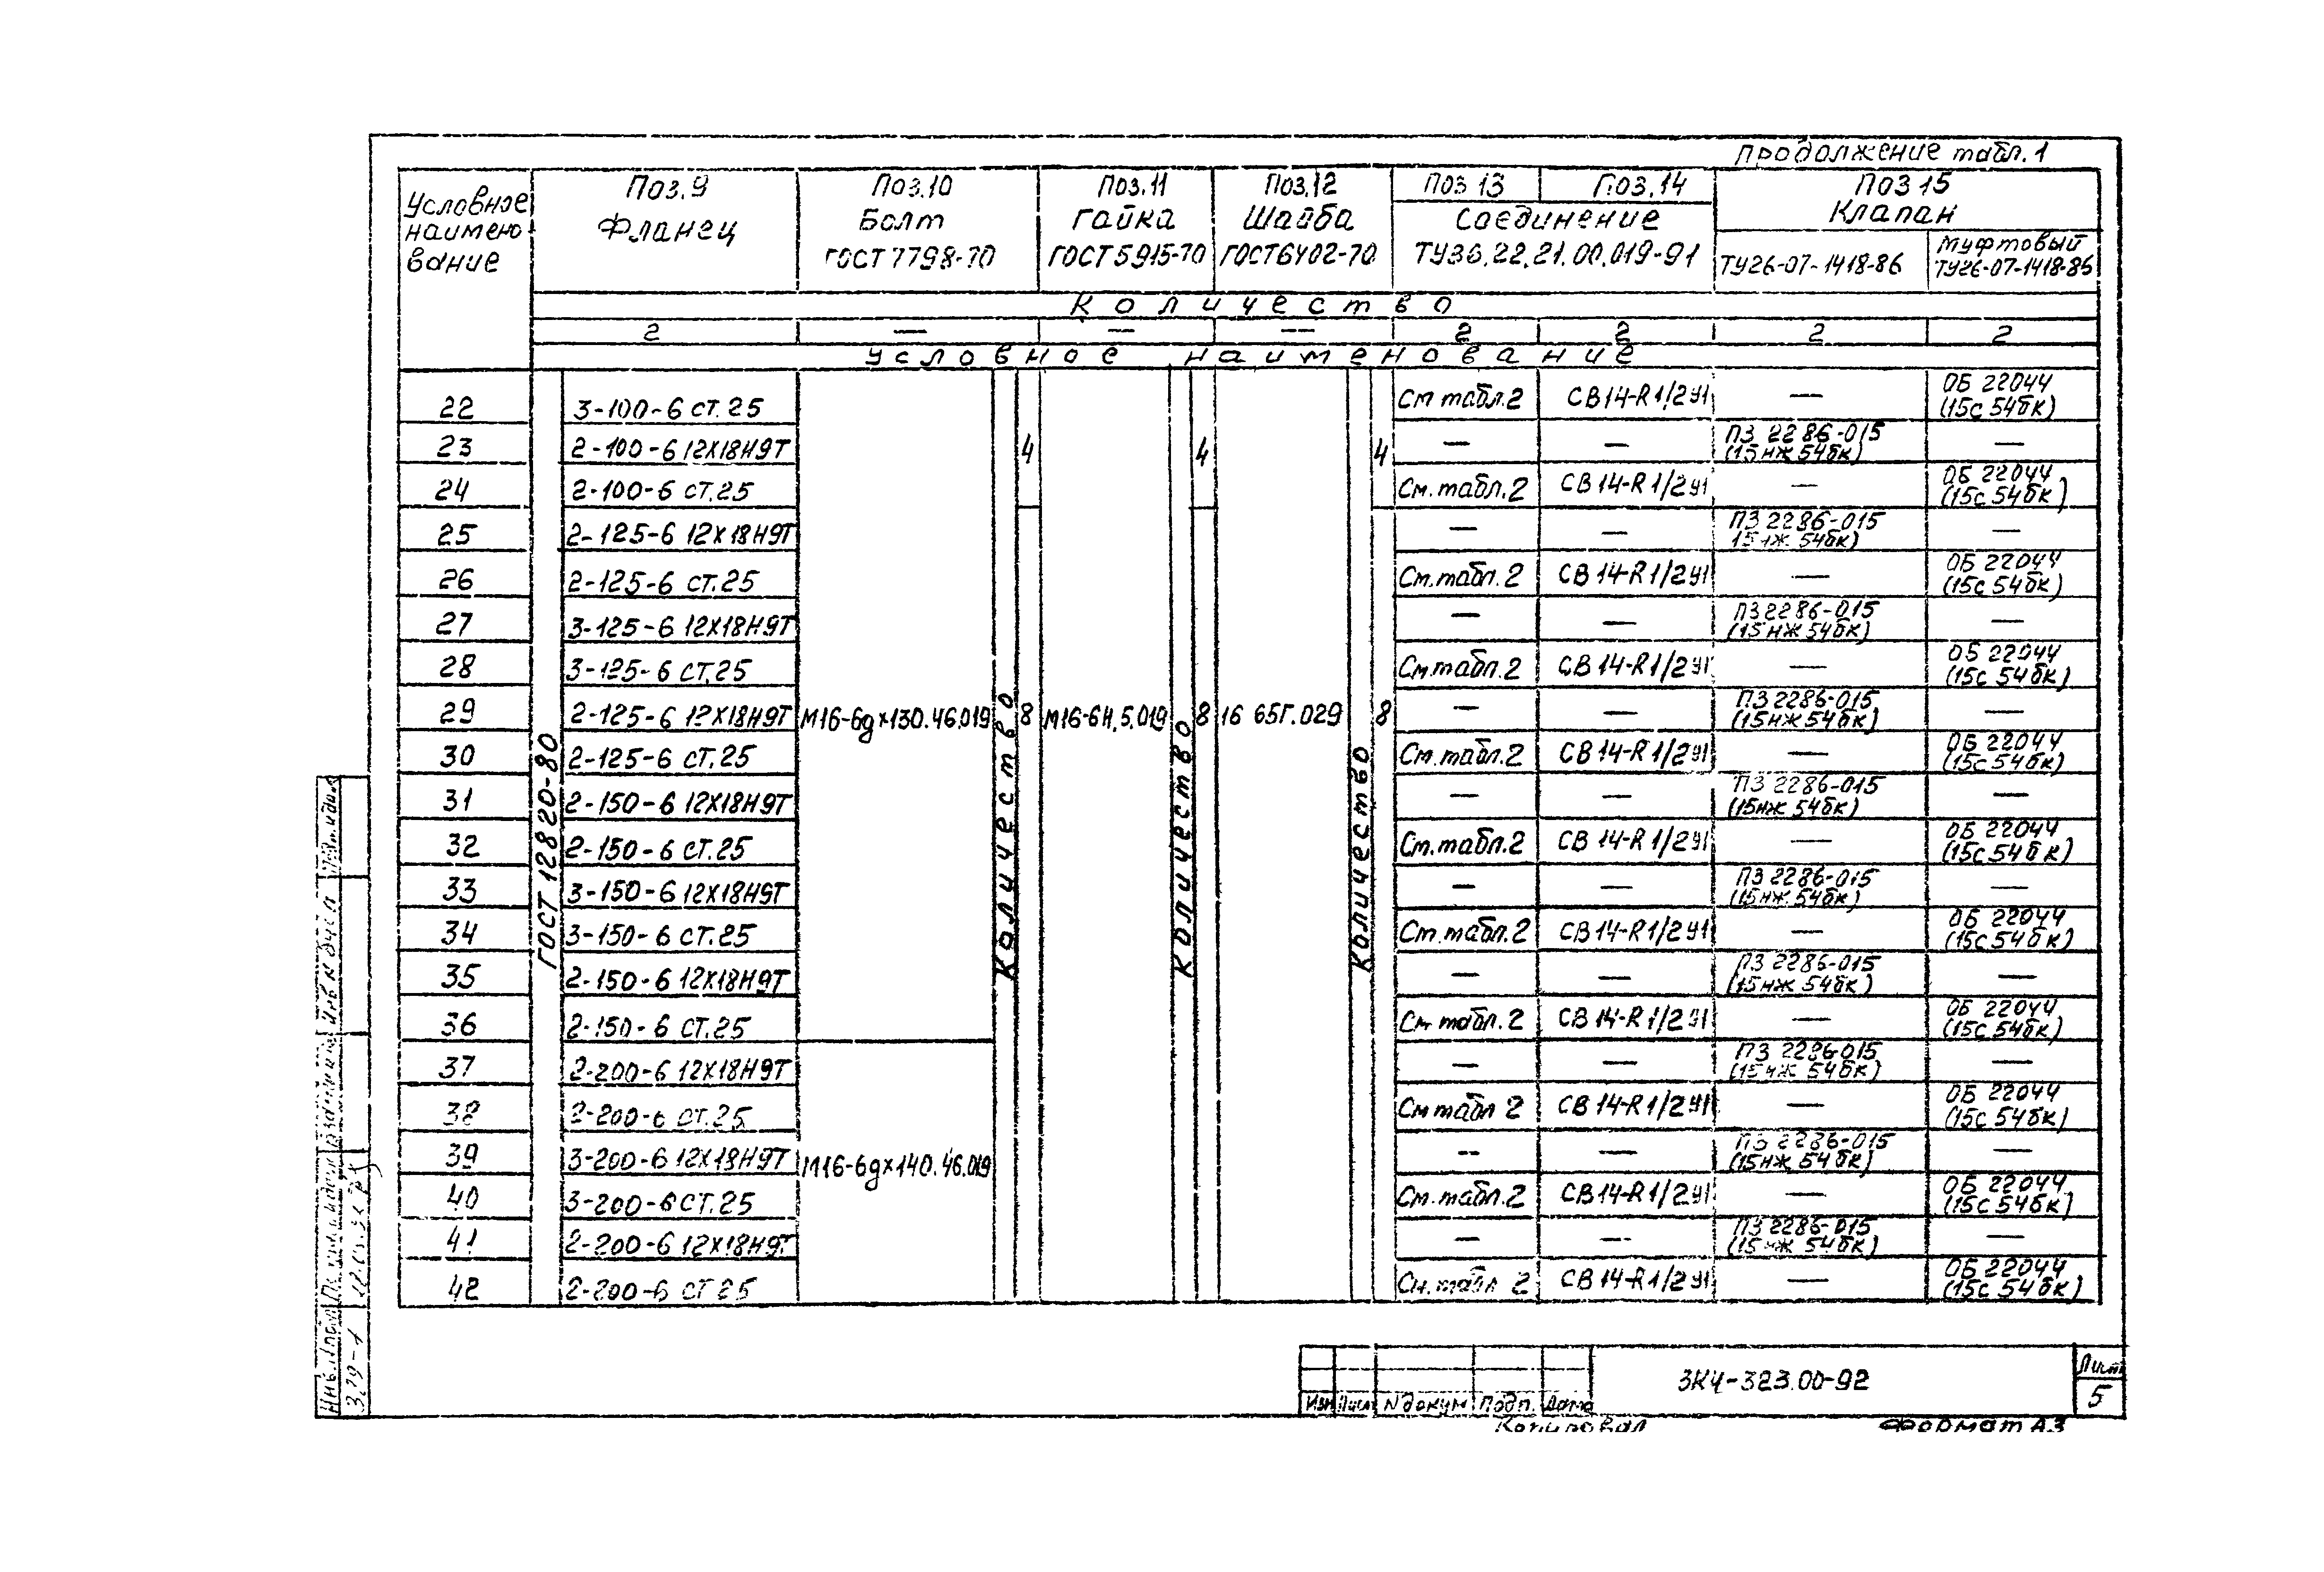 Продолжение табл.1
Условное наимено- вание
Поз.9 Фланец
Поз.10 Болт ГОСТ 7798-70
Поз.11 Гайка ГОСТ 5915-70
Поз.12 Шайба ГОСТ 6402-70
Поз 13 Поз.14
Соединение
ТУ36.22.21.00.019-91
Поз 15
Клапан
ТУ26-07-1418-86
Муфтовый ТУ26-07-1418-85
Количество
2 — — — 2 2 2 2
Условное наименование
ГОСТ 12820-80
М16-6g×130.46.019
М16-6g×140.46.019
Количество 4 8
М16-6Н.5.019
Количество 4 8
16 65Г.029
Количество 4 8
22 3-100-6 ст.25 См табл.2 СВ14-R1/2У1 — ОБ 22044 (15с 54бк)
23 2-100-6 12Х18Н9Т — — ПЗ 2286-015 (15нж 54бк) —
24 2-100-6 ст.25 См.табл.2 СВ14-R1/2У1 — ОБ 22044 (15с 54бк)
25 2-125-6 12Х18Н9Т — — ПЗ 2286-015 15нж 54бк) —
26 2-125-6 ст.25 См.табл.2 СВ14-R1/2У1 — ОБ 22044 (15с 54бк)
27 3-125-6 12Х18Н9Т — — ПЗ 2286-015 (15нж 54бк) —
28 3-125-6 ст.25 См.табл.2 СВ14-R1/2У1 — ОБ 22044 (15с 54бк)
29 2-125-6 12Х18Н9Т — — ПЗ 2286-015 (15нж 54бк) —
30 2-125-6 ст.25 См.табл.2 СВ14-R1/2У1 — ОБ 22044 (15с 54бк)
31 2-150-6 12Х18Н9Т — — ПЗ 2286-015 (15нж 54бк) —
32 2-150-6 ст.25 См.табл.2 СВ14-R1/2У1 — ОБ 22044 (15с 54бк)
33 3-150-6 12Х18Н9Т — — ПЗ 2286-015 (15нж 54бк) —
34 3-150-6 ст.25 См.табл.2 СВ14-R1/2У1 — ОБ 22044 (15с 54бк)
35 2-150-6 12Х18Н9Т — — ПЗ 2286-015 (15нж 54бк) —
36 2-150-6 ст.25 См табл.2 СВ14-R1/2У1 — ОБ 22044 (15с 54бк)
37 2-200-6 12Х18Н9Т — — ПЗ 2286-015 (15нж 54бк) —
38 2-200-6 ст.25 См табл 2 СВ14-R1/2У1 — ОБ 22044 (15с 54бк)
39 3-200-6 12Х18Н9Т — — ПЗ 2286-015 (15нж 54бк) —
40 3-200-6 ст.25 См.табл.2 СВ14-R1/2У1 — ОБ 22044 (15с 54бк)
41 2-200-6 12Х18Н9Т — — ПЗ 2286-015 (15нж 54бк) —
42 2-200-6 ст 25 См.табл 2 СВ14-R1/2У1 — ОБ 22044 (15с 54бк)
Изм Лист N докум Подп. Дата
ЗК4-323.00-92
Лист
5
Копировал Формат А3